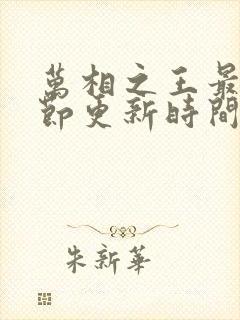 萬相之王最
節更新時間
朱新華